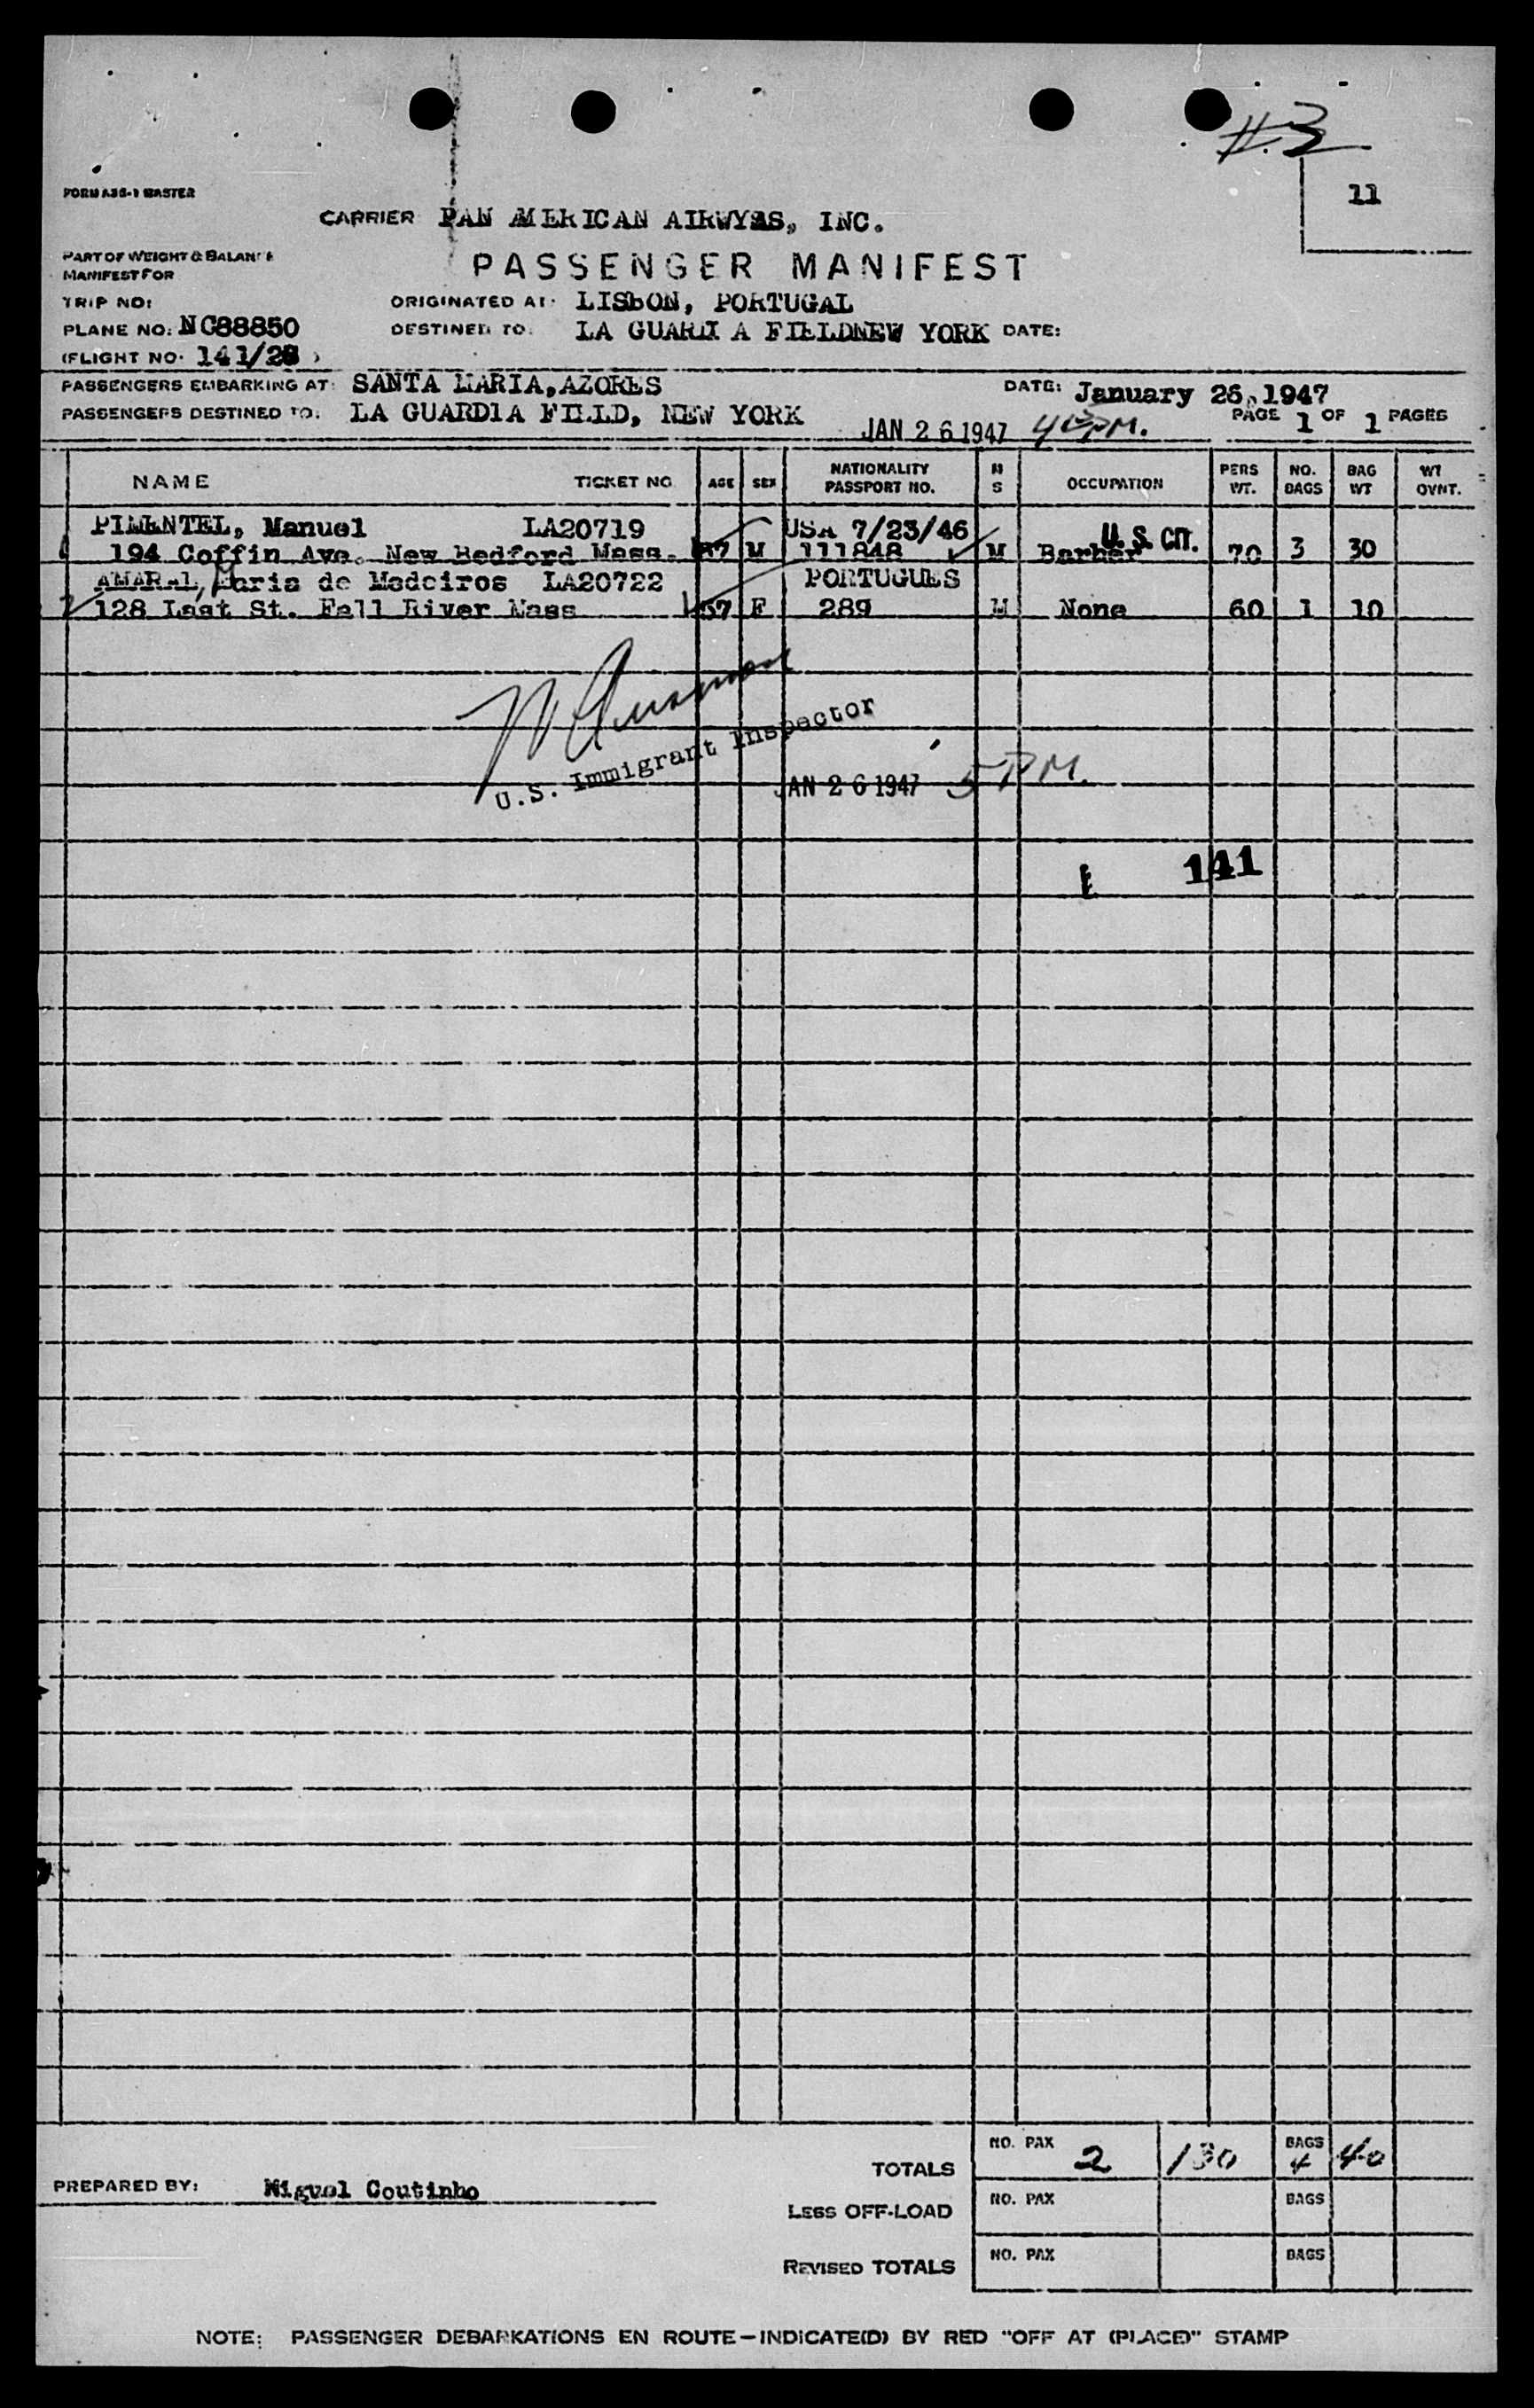 #3
FORM A36-1 MASTER
11
CARRIER PAN AMERICAN AIRWYAS, INC.
PART OF WEIGHT & BALANCE
MANIFEST FOR
PASSENGER MANIFEST
TRIP NO:
ORIGINATED AT: LISBON, PORTUGAL
PLANE NO: NC88850
DESTINED TO: LA GUARDIA FIELDNEW YORK DATE:
(FLIGHT NO. 141/26)
PASSENGERS EMBARKING AT: SANTA MARIA, AZORES
DATE: January 26, 1947
PASSENGERS DESTINED TO: LA GUARDIA FIELD, NEW YORK
PAGE 1 OF 1 PAGES
JAN 26 1947 PM.
NAME TICKET NO AGE SEX NATIONALITY PASSPORT NO. M S OCCUPATION PERS WT. NO. BAGS BAG WT WT OVNT.
PIMENTEL, Manuel LA20719 USA 7/23/46 U.S. CIT.
194 Coffin Ave. New Bedford Mass. 37 M 111848 M Barber 70 3 30
AMARAL, Maria de Medeiros LA20722 PORTUGUES
128 East St. Fall River Mass 57 F 289 M None 60 1 10
U.S. Immigrant Inspector
JAN 26 1947 5 PM.
141
TOTALS NO. PAX 2 130 BAGS 4 40
PREPARED BY: Miguel Coutinho
LESS OFF-LOAD NO. PAX BAGS
REVISED TOTALS NO. PAX BAGS
NOTE: PASSENGER DEBARKATIONS EN ROUTE—INDICATE(D) BY RED "OFF AT (PLACE)" STAMP